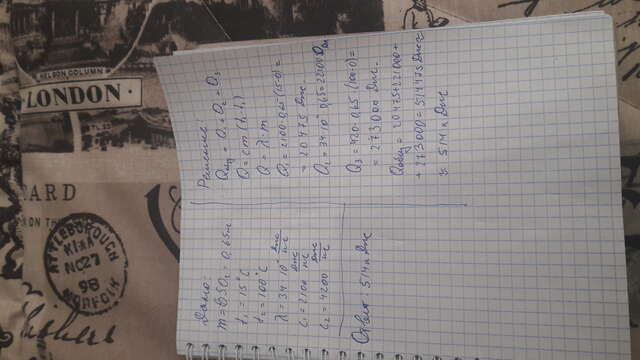 NELSON COLUMN
LONDON
ARD
ON THIS
ATTLEBOROUGH
NC27
98
NORFOLK
Дано:
t₁ = 15°C
t₂ = 100°C
λ = 34·10⁴ Дж/кг
c₁ = 2100 Дж/кг
c₂ = 4200 Дж/кг
Ответ 514 кДж
Решение
Qобщ = Q₁ + Q₂ + Q₃
Q = cm (t₂-t₁)
Q = λ·m
Q₁ = 2100·0,65·(15-0) =
= 20475 Дж
Q₂ = 34·10⁴·0,65 = 221000 Дж
Q₃ = 4200·0,65·(100-0) =
= 273000 Дж
Qобщ = 20475+221000+
+ 273000 = 514475 Дж
≈ 514 кДж